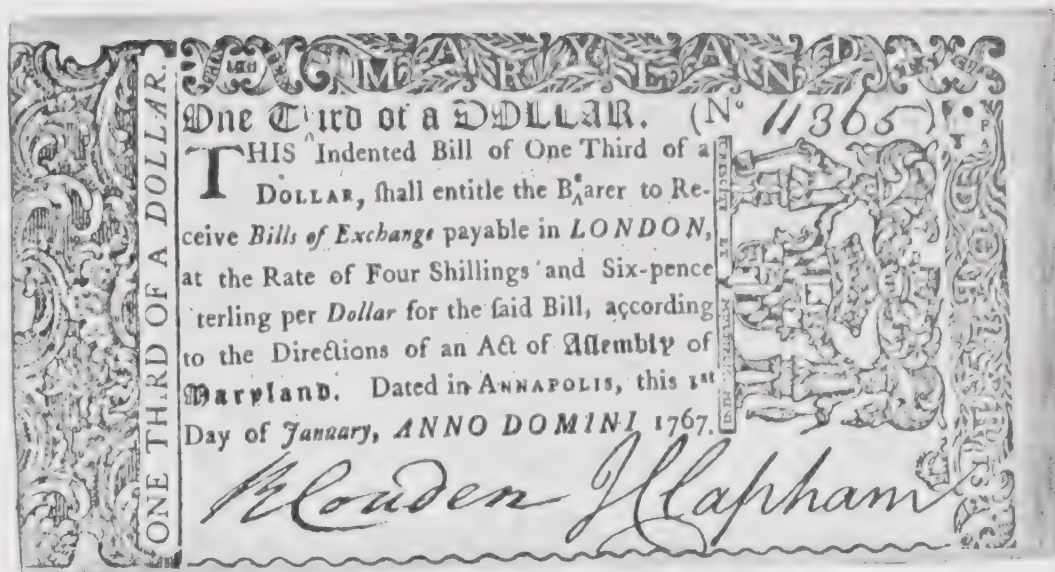 MARYLAND
One Third of a DOLLAR. (No 11365)
THIS Indented Bill of One Third of a
DOLLAR, ſhall entitle the Bearer to Re-
ceive Bills of Exchange payable in LONDON,
at the Rate of Four Shillings and Six-pence
terling per Dollar for the ſaid Bill, according
to the Directions of an Act of Aſſembly of
Maryland. Dated in ANNAPOLIS, this 1st
Day of January, ANNO DOMINI 1767.
R Couden J Clapham
ONE THIRD OF A DOLLAR.